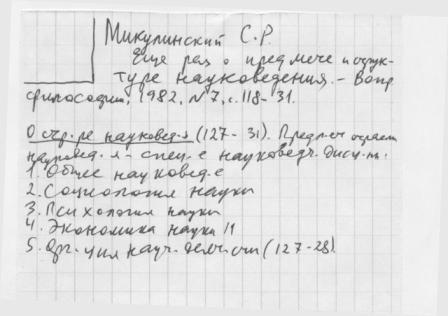 Микулинский С.Р.
Еще раз о предмете и струк-
туре науковедения. - Вопр.
философии, 1982, №7, с. 118-31.
О стр-ре науковед-я (127-31). Предлагает
науковед-я - спец-е науковедч. дисц-ны:
1. Общее науковед-е
2. Социология науки
3. Психология науки
4. Экономика науки
5. Орг-ция науч. (127-28)